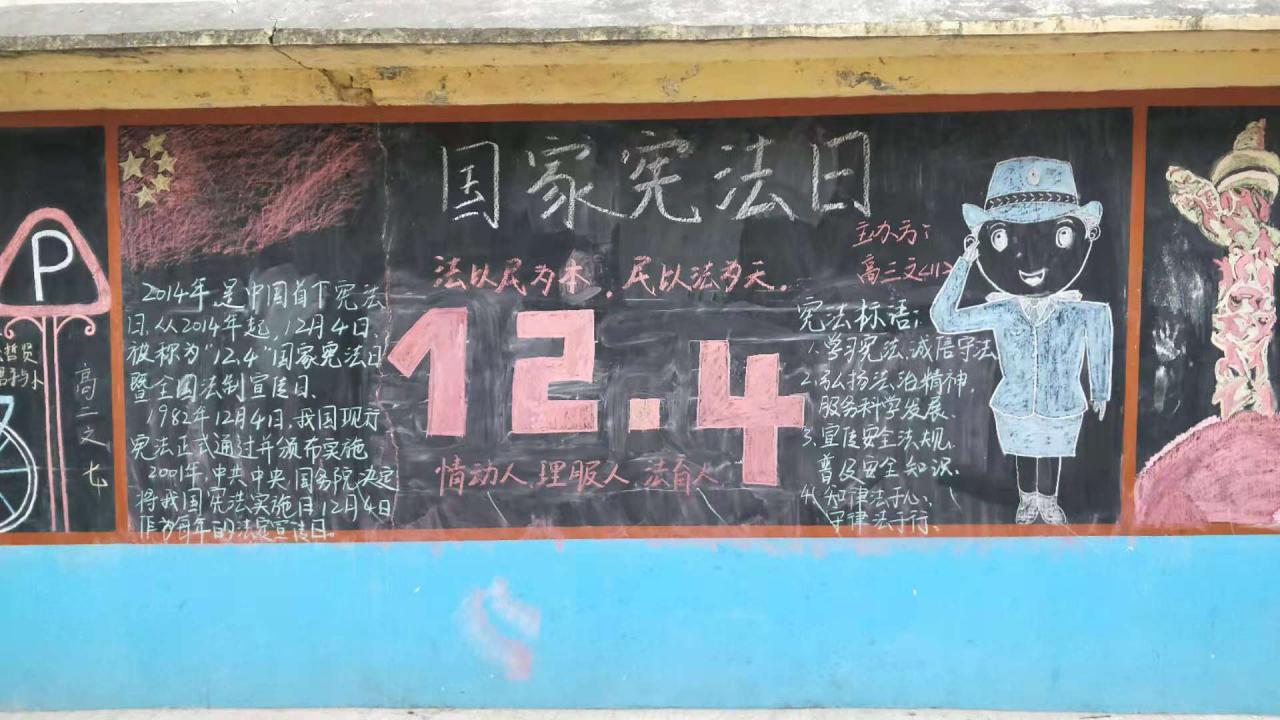 P
高
三
文
七
国家宪法日
主办方:
高三文<11>
法以民为本,民以法为天。
12.4
情动人,理服人,法育人
2014年,是中国首个宪法
日,从2014年起,12月4日,
被称为"12.4"国家宪法日
暨全国法制宣传日、
1982年12月4日,我国现行
宪法正式通过并颁布实施
2001年,中共中央,国务院决定
将我国宪法实施日12月4日
作为每年的法定宣传日。
宪法标语:
1.学习宪法,诚信守法
2.弘扬法治精神,
服务科学发展、
3.宣传安全法规,
普及安全知识、
4.知律法于心、
守律法于行、